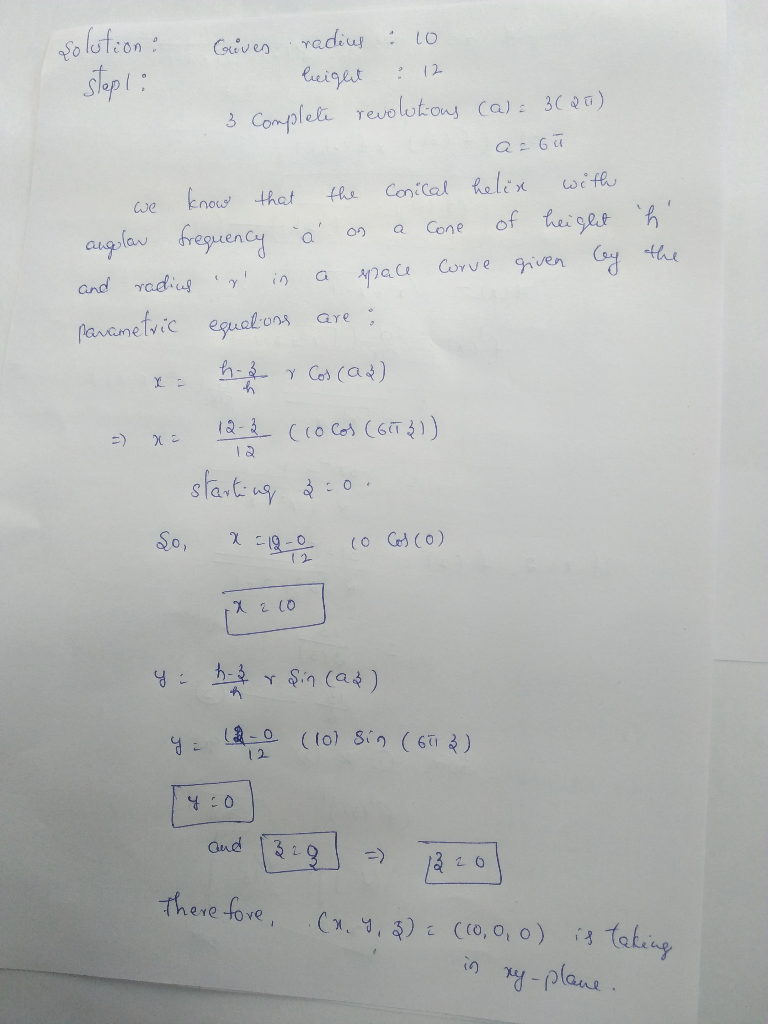 Solution : Given radius : 10
Step 1 : height : 12
3 Complete revolutions (a) = 3(2π)
a = 6π
we know that the Conical helix with
angular frequency 'a' on a Cone of height 'h'
and radius 'r' in a space Curve given by the
Parametric equations are :
x = h-z/h r Cos(az)
=) x = 12-z/12 (10 Cos (6πz))
starting z = 0 .
So, x = 12-0/12 10 Cos(0)
x = 10
y = h-z/h r Sin(az)
y = 12-0/12 (10) Sin (6πz)
y = 0
and z = z =) z = 0
Therefore, (x, y, z) = (10, 0, 0) is taking
in xy-plane.